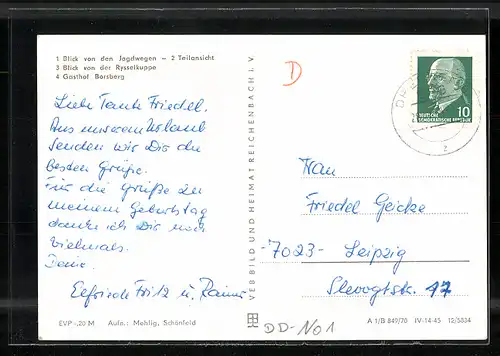 1 Blick von den Jagdwegen – 2 Teilansicht
3 Blick von der Rysselkuppe
4 Gasthof Borsberg
Liebe Tante Friedel.
Aus unserem Urlaub
senden wir Dir die
besten Grüße.
Für die Grüße zu
meinem Geburtstag
danke ich Dir noch
vielmals.
Deine
Elfriede Fritz u. Rainer
EVP -.20 M Aufn.: Mehlig, Schönfeld
VEB BILD UND HEIMAT REICHENBACH I. V.
D
10
DEUTSCHE
DEMOKRATISCHE REPUBLIK
Frau
Friedel Geicke
-7023- Leipzig
Slevogtstr. 17
DD-No1
A 1/B 849/70 IV-14-45 12/5834